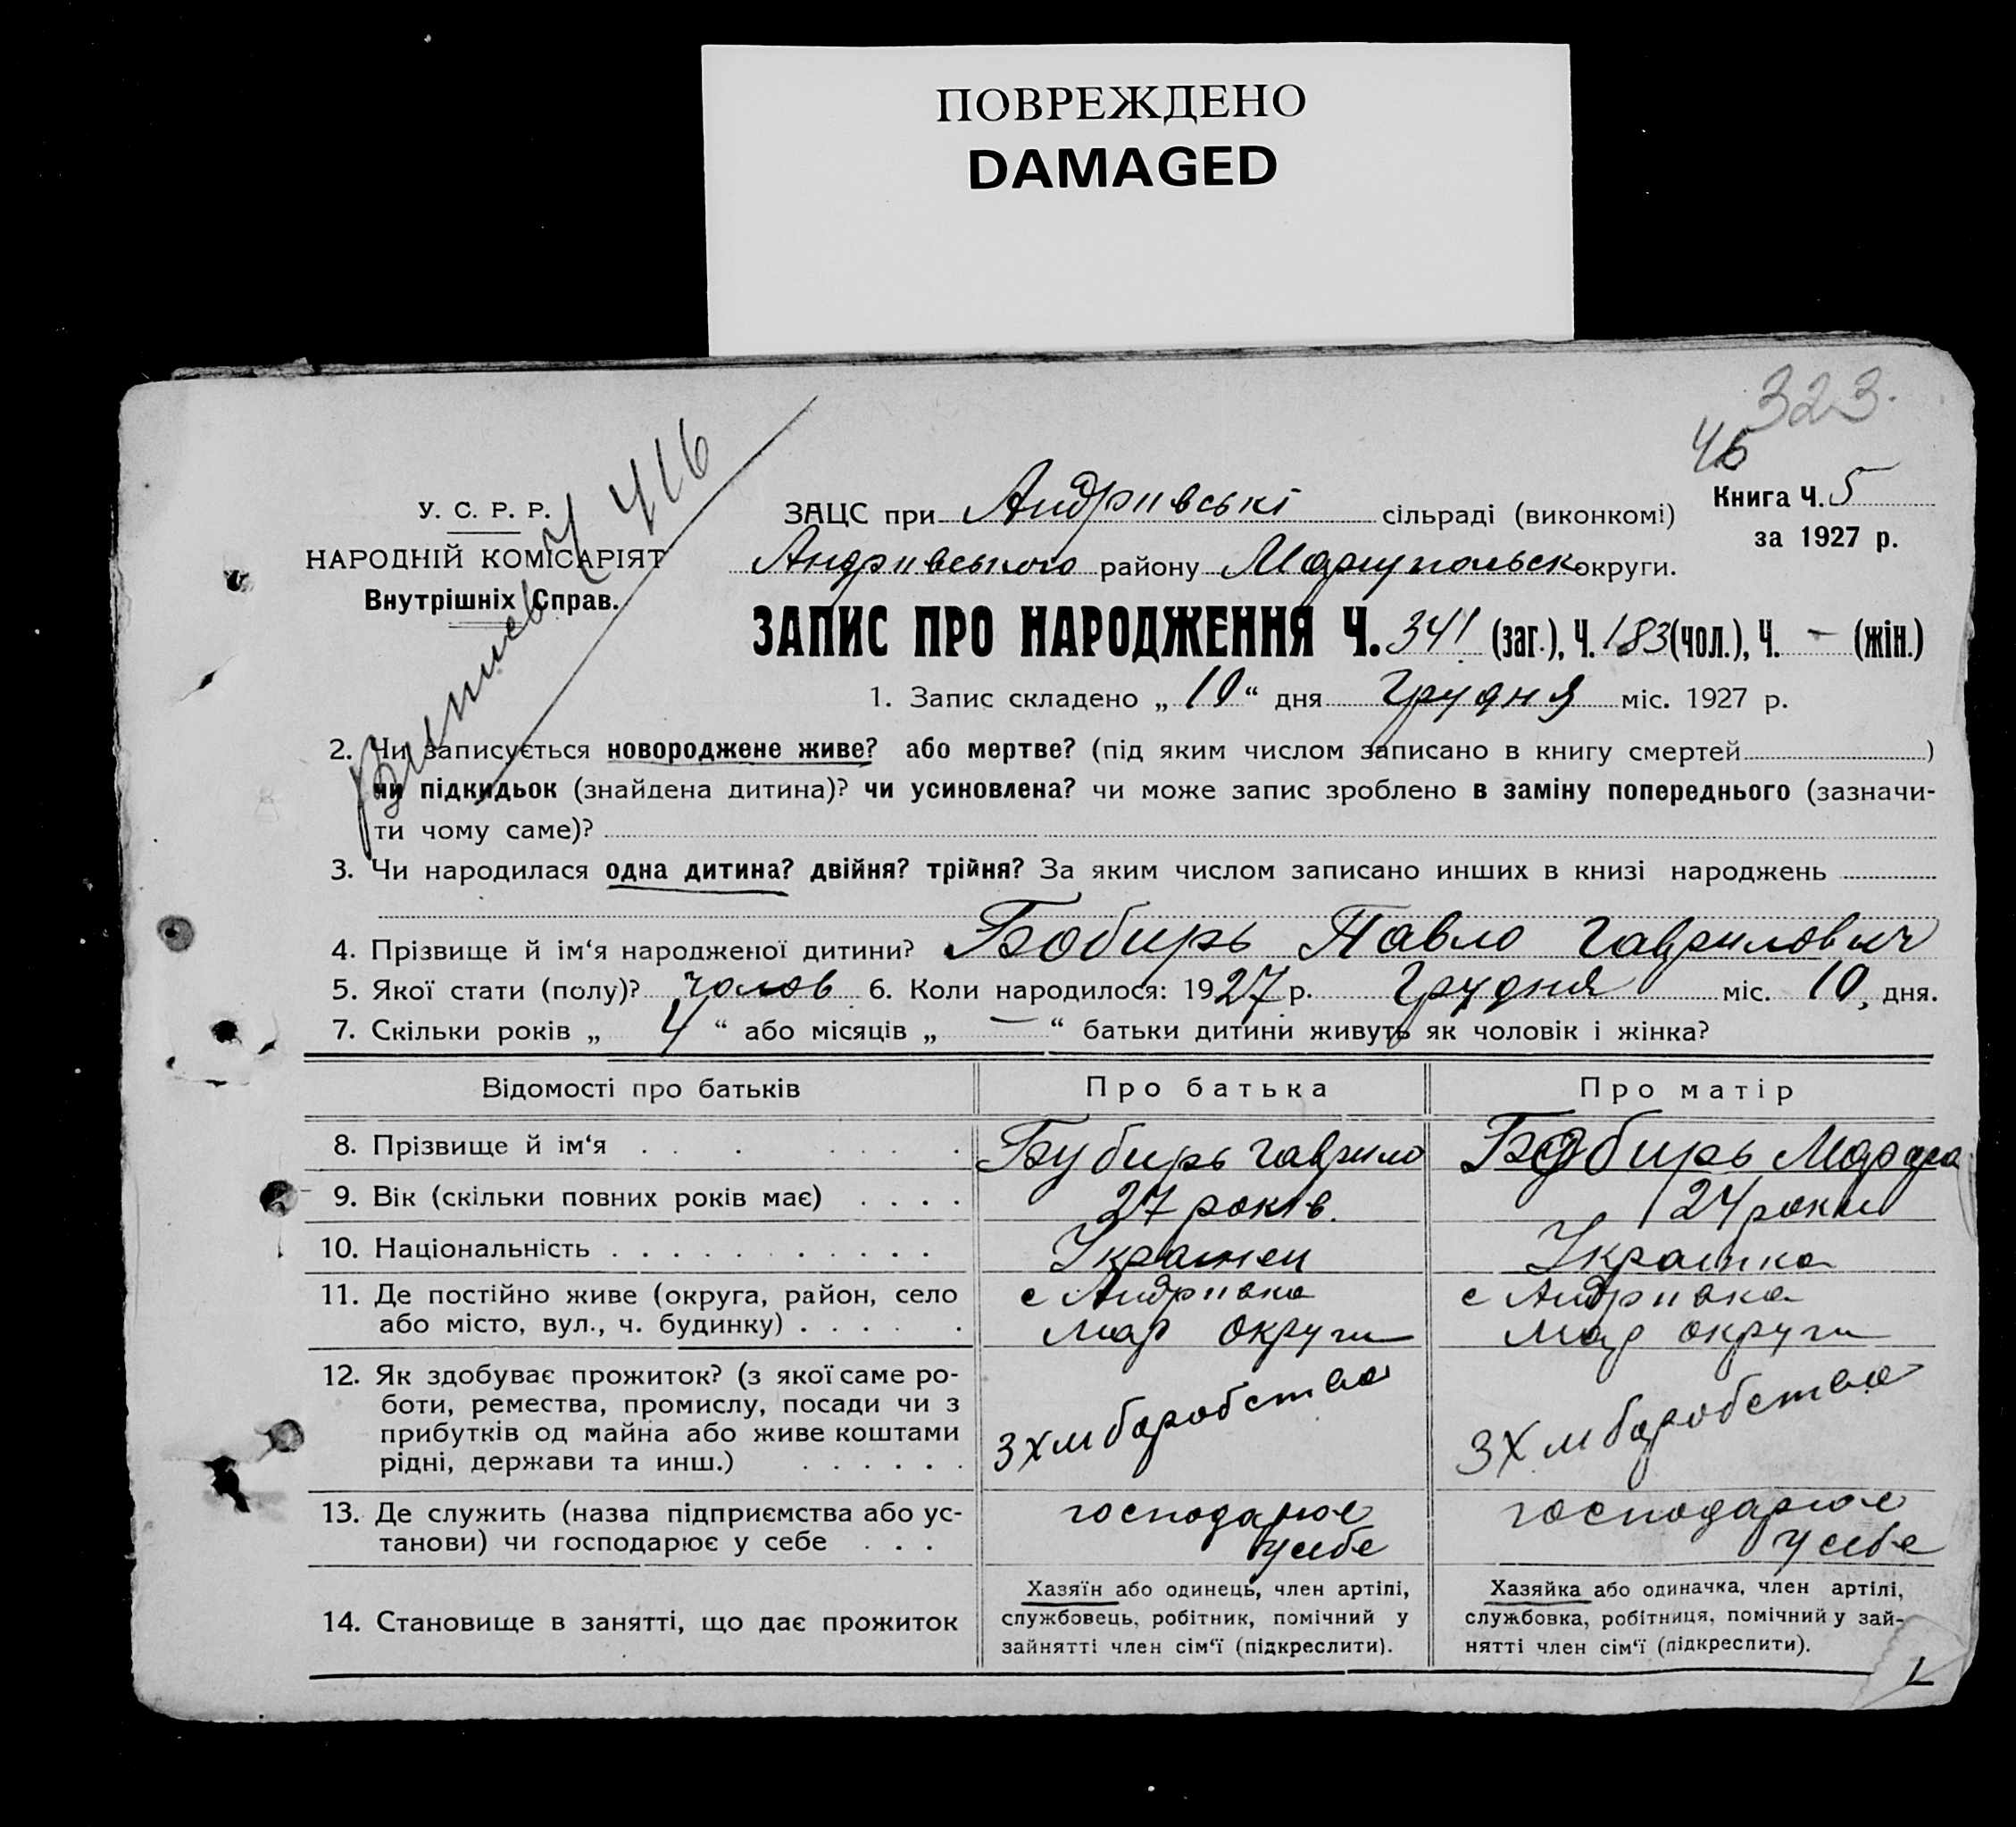 ПОВРЕЖДЕНО
DAMAGED
323.
46
У. С. Р. Р.
НАРОДНІЙ КОМІСАРІЯТ
Внутрішніх Справ.
416
ЗАЦС при Андриівські сільраді (виконкомі)
Книга Ч. 5
за 1927 р.
Андриівського району Мариупольськ округи.
ЗАПИС ПРО НАРОДЖЕННЯ Ч. 341 (заг.), Ч. 183 (чол.), Ч. — (жін.)
1. Запис складено „ 10 “ дня Грудня міс. 1927 р.
2. Чи записується новороджене живе? або мертве? (під яким числом записано в книгу смертей )
чи підкидьок (знайдена дитина)? чи усиновлена? чи може запис зроблено в заміну попереднього (зазначи-
ти чому саме)?
3. Чи народилася одна дитина? двійня? трійня? За яким числом записано инших в книзі народжень
4. Прізвище й ім‘я народженої дитини? Бобирь Павло Гаврилович
5. Якої стати (полу)? чолов 6. Коли народилося: 1927 р. Грудня міс. 10, дня.
7. Скільки років „ 4 “ або місяців „ — “ батьки дитини живуть як чоловік і жінка?
Відомості про батьків
Про батька
Про матір
8. Прізвище й ім‘я . . . . . . .
Бубирь Гаврило
Бобирь
9. Вік (скільки повних років має) . . . .
27 років.
24 роки
10. Національність . . . . . . . . . . .
Украінец
Украінка
11. Де постійно живе (округа, район, село
або місто, вул., ч. будинку) . . . . .
с Андриівка
Мар округи
с Андриівка
Мар округи
12. Як здобуває прожиток? (з якої саме ро-
боти, ремества, промислу, посади чи з
прибутків од майна або живе коштами
рідні, держави та инш.) . . . . . .
З хлиборобства
З хлиборобства
13. Де служить (назва підприємства або ус-
танови) чи господарює у себе . . .
господарює
у себе
господарює
у себе
14. Становище в занятті, що дає прожиток
Хазяїн або одинець, член артілі,
службовець, робітник, помічний у
зайнятті член сім‘ї (підкреслити).
Хазяйка або одиначка, член артілі,
службовка, робітниця, помічний у зай-
нятті член сім‘ї (підкреслити).